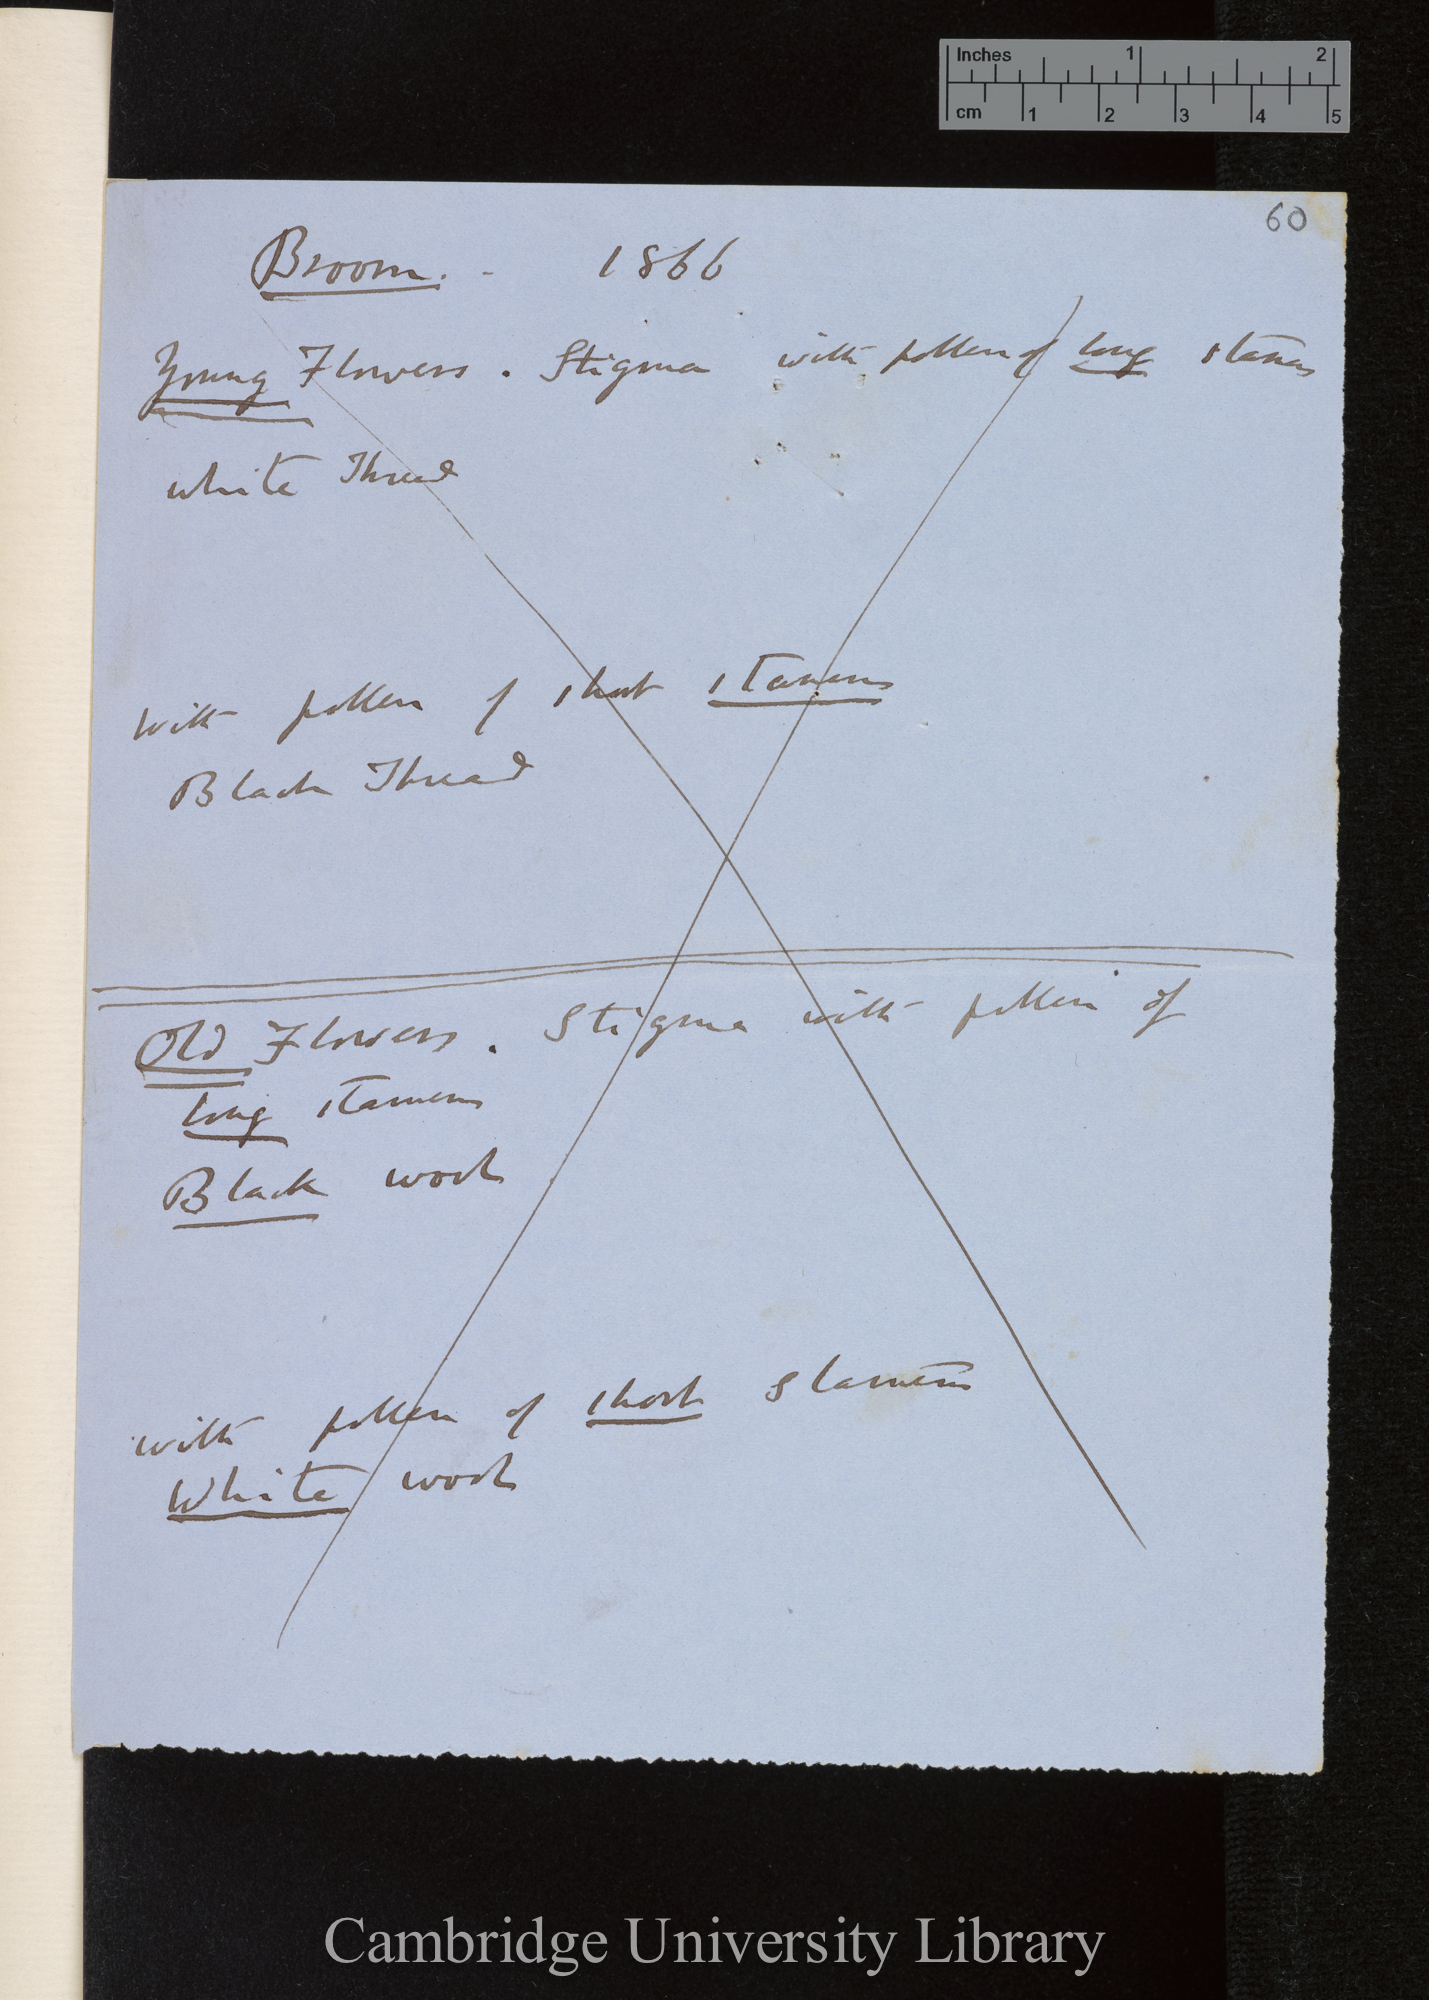 Inches 1 2
cm 1 2 3 4 5
60
Broom. - 1866
Young Flowers. Stigma with pollen of long stamens
white Thread
with pollen of short stamens
Black Thread
Old Flowers. Stigma with pollen of
long stamens
Black wool
with pollen of short stamens
White wool
Cambridge University Library